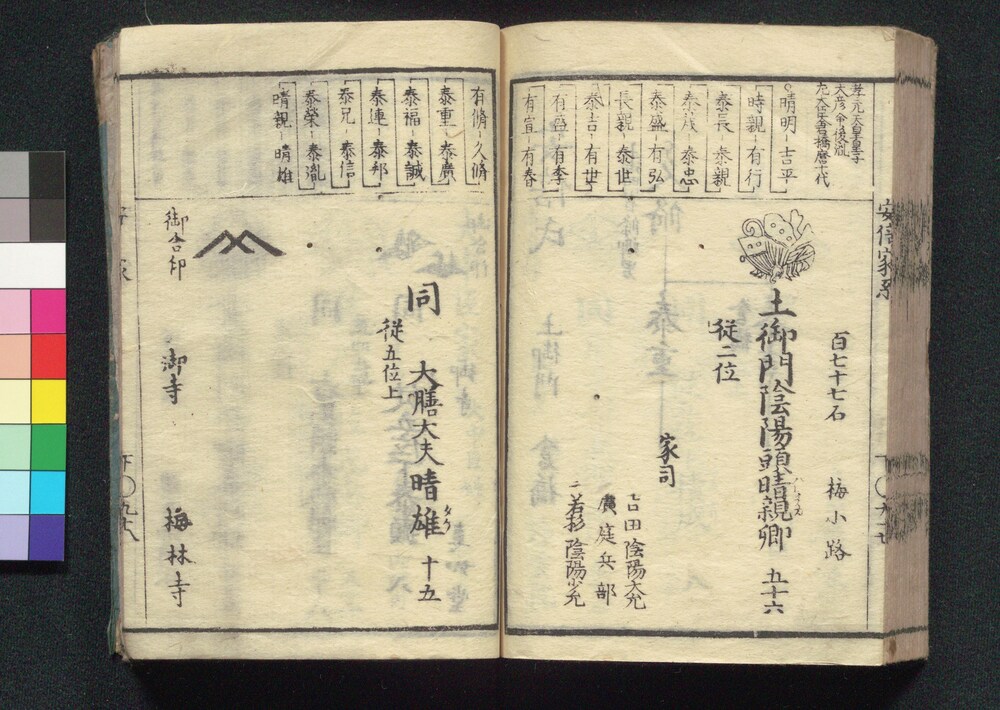 安倍家系
孝元天皇皇子
大彦命後胤
左大臣倉橋麿十代
晴明 吉平
時親 有行
泰長 泰親
泰茂 泰忠
泰盛 有弘
長親 泰世
泰吉 有世
有盛 有季
有宣 有春
百七十七石 梅小路
土御門陰陽頭晴親卿 五十六
従二位
家司
吉田陰陽大允
廣庭兵部
若杉陰陽少允
有脩 久脩
泰重 泰廣
泰福 泰誠
泰連 泰邦
泰兄 泰信
泰榮 泰胤
晴親 晴雄
同 大膳大夫晴雄 十五
従五位上
御合印
御寺 梅林寺